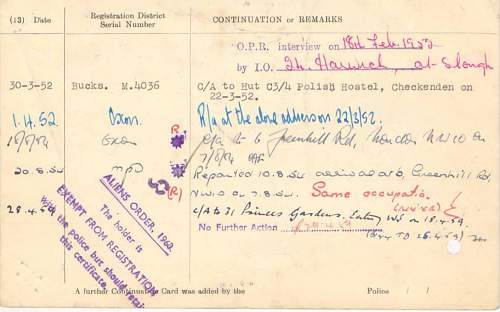 (13) Date Registration District Serial Number CONTINUATION OR REMARKS
O.P.R. interview on 18th Feb. 1952
by I.O. Harwich, at Slough
30-3-52 Bucks. M.4036 C/A to Hut C3/4 Polish Hostel, Checkenden on
22-3-52.
1.4.52 Oxon. R/a at the above address on 22/3/52.
Oxon (R) c/a to 6 Greenhill Rd, London N.W.10 on
7/8/54
20.8.54 MPD Reported 10.8.54 arrived at 6, Greenhill Rd,
N.W.10 on 7.8.54. Same occupatio.
(R)
28.4.59 C/A to 31 Princes Gardens. Ealing W5 on 18.4.59.
No Further Action 28.4.59
ALIENS ORDER, 1960
The holder is
EXEMPT FROM REGISTRATION
with the police but should retain
this certificate.
A further Continuation Card was added by the Police / /